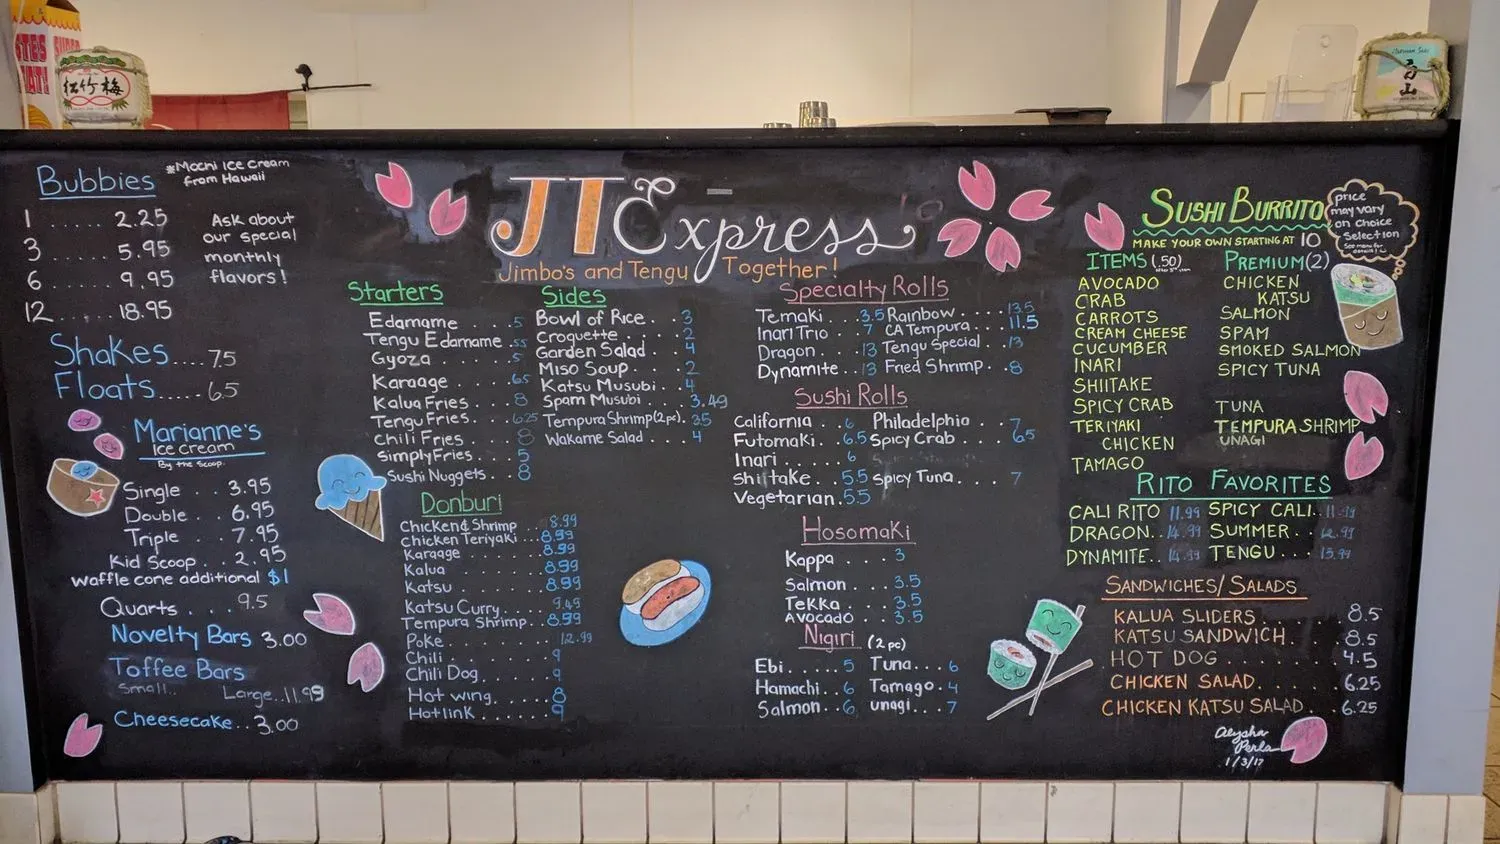 松竹梅
Bubbies
*Mochi Ice Cream
from Hawaii
1 ..... 2.25
3 ..... 5.95
6 ..... 9.95
12 ..... 18.95
Ask about
our special
monthly
flavors!
Shakes.... 7.5
Floats..... 6.5
Marianne's
Ice cream
By the scoop
Single .. 3.95
Double .. 6.95
Triple .. 7.95
Kid Scoop .. 2.95
Waffle cone additional $1
Quarts .... 9.5
Novelty Bars 3.00
Toffee Bars
Small.. Large..11.99
Cheesecake.. 3.00
JTExpress
Jimbo's and Tengu Together!
Starters
Edamame .... 5
Tengu Edamame .. 5.5
Gyoza .... 5
Karaage .... 6.5
Kalua Fries .... 8
Tengu Fries .... 6.25
Chili Fries .... 8
Simply Fries .... 5
Sushi Nuggets .. 8
Sides
Bowl of Rice .. 3
Croquette .... 2
Garden Salad .. 4
Miso Soup .... 2
Katsu Musubi .. 4
Spam Musubi .. 3.49
Tempura Shrimp (2 pc). 3.5
Wakame Salad .. 4
Donburi
Chicken & Shrimp ... 8.99
Chicken Teriyaki ... 8.99
Karaage ..... 8.99
Kalua ..... 8.99
Katsu ..... 8.99
Katsu Curry..... 9.49
Tempura Shrimp... 8.99
Poke ..... 12.99
Chili ..... 9
Chili Dog ..... 9
Hot wing ..... 8
Hotlink ..... 9
Specialty Rolls
Temaki . . 3.5 Rainbow .... 13.5
Inari Trio . 7 CA Tempura ... 11.5
Dragon .. 13 Tengu Special ... 13
Dynamite.. 13 Fried Shrimp .. 8
Sushi Rolls
California . . 6 Philadelphia .. 7
Futomaki. . 6.5 Spicy Crab .... 6.5
Inari .... 6
Shiitake .. 5.5 Spicy Tuna .... 7
Vegetarian.5.5
Hosomaki
Kappa ... 3
Salmon ... 3.5
Tekka .... 3.5
Avocado ... 3.5
Nigiri (2 pc)
Ebi ..... 5 Tuna ... 6
Hamachi.. 6 Tamago. 4
Salmon .. 6 unagi ... 7
Sushi Burrito
price
may vary
on choice
Selection
MAKE YOUR OWN STARTING AT 10
ITEMS (.50)
AVOCADO
CRAB
CARROTS
CREAM CHEESE
CUCUMBER
INARI
SHIITAKE
SPICY CRAB
TERIYAKI
CHICKEN
TAMAGO
PREMIUM (2)
CHICKEN
KATSU
SALMON
SPAM
SMOKED SALMON
SPICY TUNA
TUNA
TEMPURA SHRIMP
UNAGI
RITO FAVORITES
CALI RITO 11.99 SPICY CALI.. 11.99
DRAGON.. 14.99 SUMMER .. 12.99
DYNAMITE.. 14.99 TENGU ... 13.99
SANDWICHES/SALADS
KALUA SLIDERS ...... 8.5
KATSU SANDWICH ...... 8.5
HOT DOG ........ 4.5
CHICKEN SALAD...... 6.25
CHICKEN KATSU SALAD.. 6.25
Alysha
Perla
1/3/17